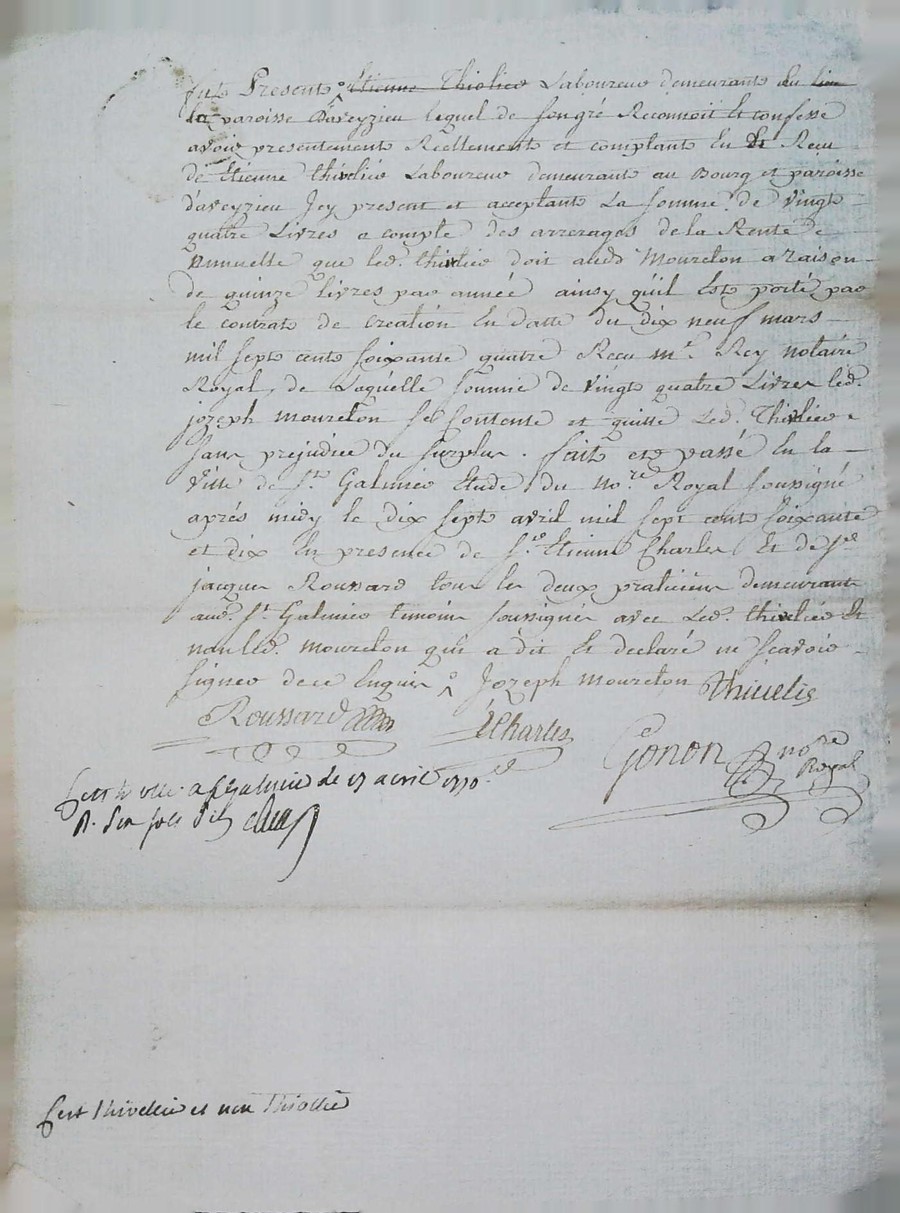 fut Present ° Etienne Thiolier Laboureur demeurant au lieu
la paroisse d'aveyzieu lequel de son gré Reconnoit et confesse
avoir presentement Reellement et comptant En de Recu
de Etienne thivelier Laboureur demeurant au Bourg et paroisse
d'aveyzieu Jcy present et acceptant La somme de vingt
quatre Livres a compte des arrerages de la Rente de
annuelle que led. thivelier doit aud. Moureton a raison
de quinze livres par année ainsy qu'il Est porté par
le contrat de creation En datte du dix neuf mars
mil sept cent soixante quatre Recu me. Rey notaire
Royal, de Laquelle somme de vingt quatre Livres led.
joseph moureton se Contente et quitte Led. Thivelier
sans prejudice du surplus. fait et passé En la
ville de St. Galmier Etude du nore. Royal soussigné
aprés midy le dix sept avril mil sept cent soixante
et dix En presence de Sr. Etienne Charles Et de Sr
jacques Roussard tous les deux praticiens demeurant
aud. St. Galmier temoins soussignés avec Led. thivelier Et
non led. moureton qui a dit Et declaré ne scavoir
signer de ce Enquis ° Jozeph moureton Thivelie
Roussard ECharles
Gonon nore Royal
a St Galmier le 17 avril 1770
R. six sols
C'est thivellier et non thiollie